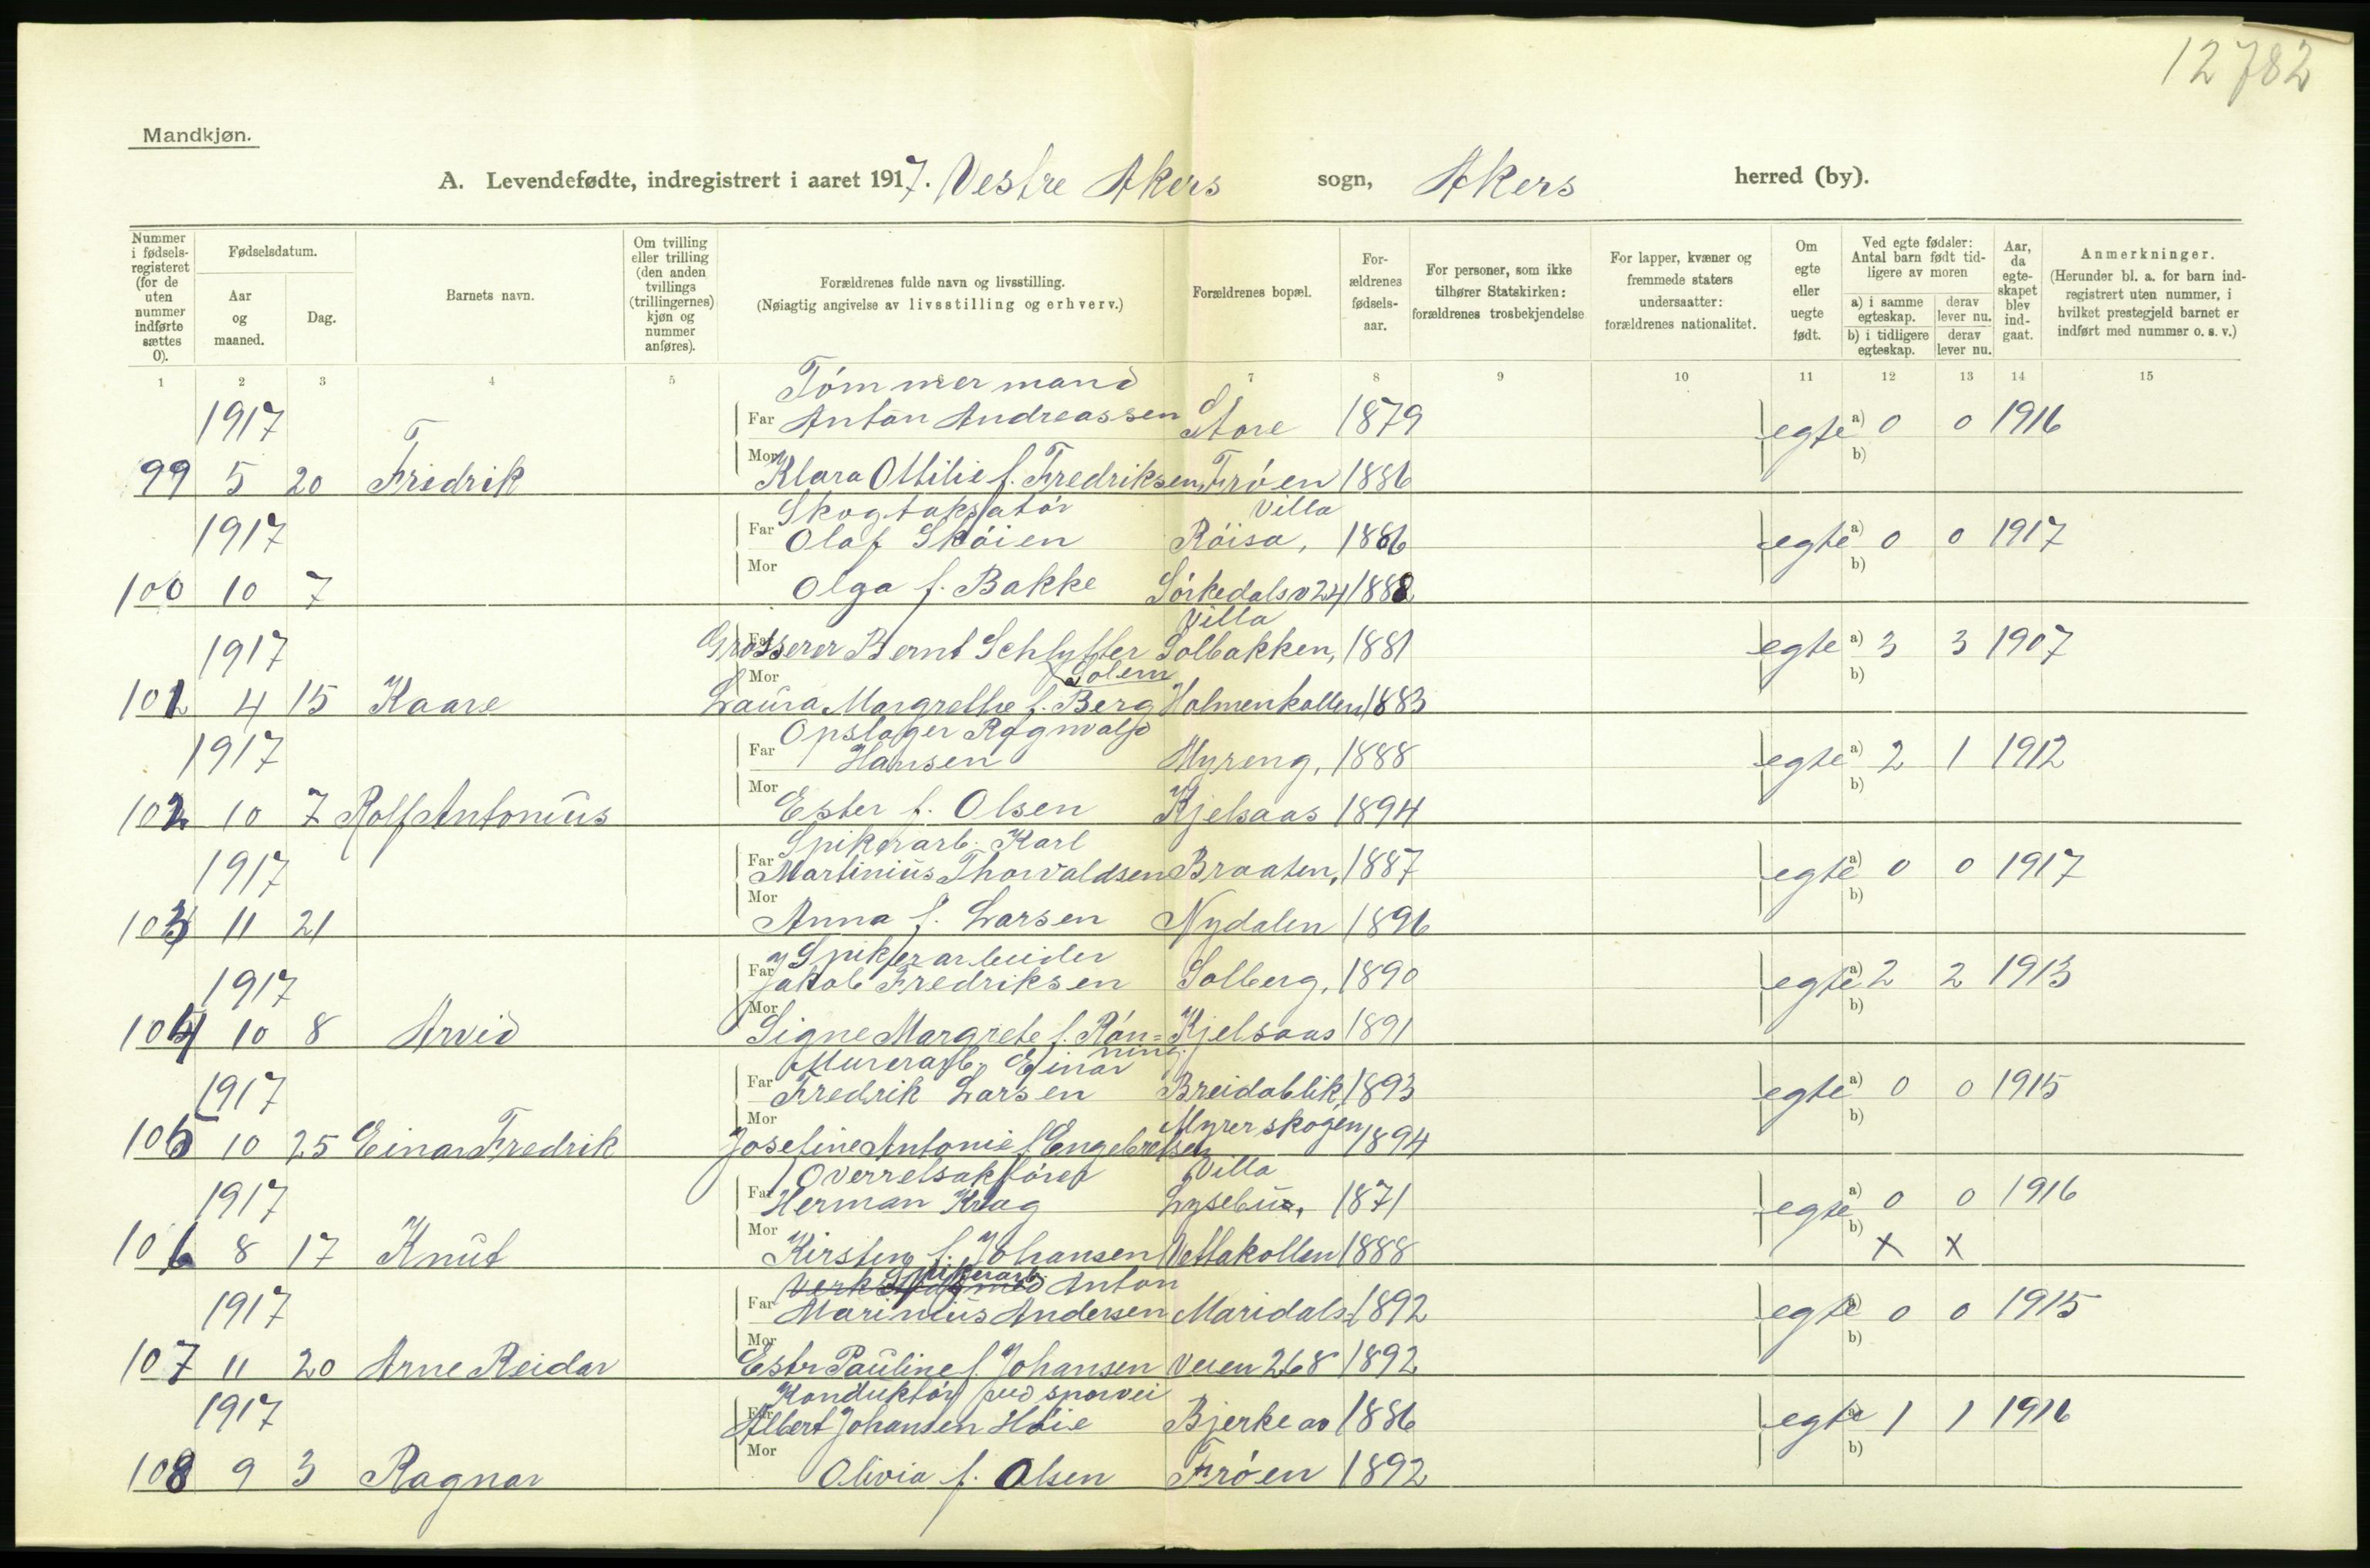 12782
Mandkjøn.
A. Levendefødte, indregistrert i aaret 1917. Vestre Akers sogn, Akers herred (by).
Nummer i fødsels-registeret (for de uten nummer indførte sættes 0).
Fødselsdatum.
Aar og maaned.
Dag.
Barnets navn.
Om tvilling eller trilling (den anden tvillings (trillingernes) kjøn og nummer anføres).
Forældrenes fulde navn og livsstilling.
(Nøiagtig angivelse av livsstilling og erhverv.)
Forældrenes bopæl.
For-ældrenes fødsels-aar.
For personer, som ikke tilhører Statskirken: forældrenes trosbekjendelse
For lapper, kvæner og fremmede staters undersaatter: forældrenes nationalitet.
Om egte eller uegte født.
Ved egte fødsler: Antal barn født tid-ligere av moren
a) i samme egteskap. derav lever nu.
b) i tidligere egteskap. derav lever nu.
Aar, da egte-skapet blev ind-gaat.
Anmerkninger.
(Herunder bl. a. for barn ind-registrert uten nummer, i hvilket prestegjeld barnet er indført med nummer o. s. v.)
1 2 3 4 5 7 8 9 10 11 12 13 14 15
Tómmermand
1917 Far Anton Andreassen Store 1879 egte a) 0 0 1916
99 5 20 Fridrik Mor Klara Ottilie f. Fredriksen Fróen 1886 b)
Skogtaksatór Villa
1917 Far Olaf Skóien Róisa, 1886 egte a) 0 0 1917
100 10 7 Mor Olga f. Bakke Sórkedalsv 24 1888 b)
Villa
1917 Far Grosserer Bernt Schlytter Solbakken, 1881 egte a) 3 3 1907
Solem
101 4 15 Kaare Mor Laura Margrethe f. Berg Holmenkollen 1883 b)
Opslager Ragnvald
1917 Far Hansen Myreng, 1888 egte a) 2 1 1912
102 10 7 Rolf Antonius Mor Ester f. Olsen Kjelsaas 1894 b)
Spikerarb. Karl
1917 Far Martinius Thorvaldsen Braaten, 1887 egte a) 0 0 1917
103 11 21 Mor Anna f. Larsen Nydalen 1896 b)
Spikerarbeider
1917 Far Jakob Fredriksen Solberg, 1890 egte a) 2 2 1913
104 10 8 Arvid Mor Signe Margrete f. Rón= Kjelsaas 1891 b)
ning.
Murerarb. Einar
1917 Far Fredrik Larsen Breidablik, 1893 egte a) 0 0 1915
Myrerskogen
105 10 25 Einar Fredrik Mor Josefine Antonie f Engebretsen 1894 b)
Overretsakfórer Villa
1917 Far Herman Krag Lysebu, 1871 egte a) 0 0 1916
106 8 17 Knut Mor Kirsten f. Johansen Vettakollen 1888 b) x x
Spikerarb. Anton
1917 Far Marinius Andersen Maridals= 1892 egte a) 0 0 1915
107 11 20 Arne Reidar Mor Estr Pauline f. Johansen veien 268 1892 b)
Konduktór ved sporvei
1917 Far Albert Johansen Hóie Bjerke av 1886 egte a) 1 1 1916
108 9 3 Ragnar Mor Olivia f. Olsen Fróen 1892 b)